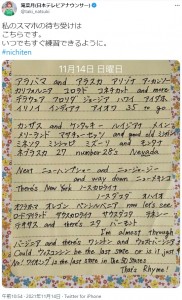 滝菜月(日本テレビアナウンサー)
私のスマホの待ち受けは
こちらです。
いつでもすぐ練習できるように。
#nichiten
11月14日 日曜日
アラバマ and アラスカ アリゾナ アーカンソー
カリフォルニア コロラド コネチカット and more
デラウェア フロリダ ジョージア ハワイ アイダホ
イリノイ インディアナ アイオワ 35 to go
カンザス and ケンタッキー ルイジアナ メイン
メリーランド マサチューセッツ and good old ミシガン
ミネソタ ミシシッピ ミズーリ and モンタナ
ネブラスカ 27 number 28's Nevada
Next ニューハンプシャー and ニュージャージー
and way down ニューメキシコ
There's New York ノースカロライナ
ノースダコタ オハイオ
オクラホマ オレゴン ペンシルバニア now let's see
ロードアイランド サウスカロライナ サウスダコタ テネシー
テキサス and there's ユタ バーモント
I'm almost through
バージニア and there's ワシントン and ウェストバージニア
Could ウィスコンシン be the last state or is it just
No! ワイオミング is the last state in the 50 states
That's Rhyme!
午前10:54 · 2021年11月14日 · Twitter for iPhone